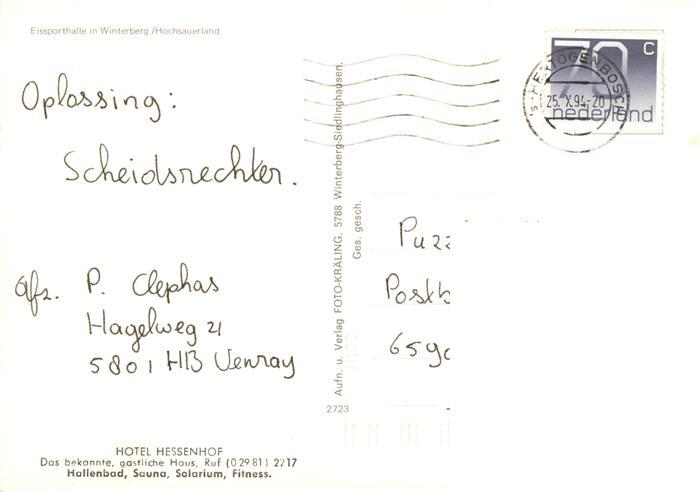 Eissporthalle in Winterberg /Hochsauerland
70 c
nederland
'S-HERTOGENBOSCH
25. X.94-20
Oplossing:
Scheidsrechter.
Afz. P. Clephas
Hagelweg 21
5801 HB Venray
Aufn. u. Verlag FOTO-KRÄLING, 5788 Winterberg-Siedlinghausen.
Ges. gesch.
Puzz
Postb
2723
HOTEL HESSENHOF
Das bekannte, gastliche Haus, Ruf (02981) 2217
Hallenbad, Sauna, Solarium, Fitness.